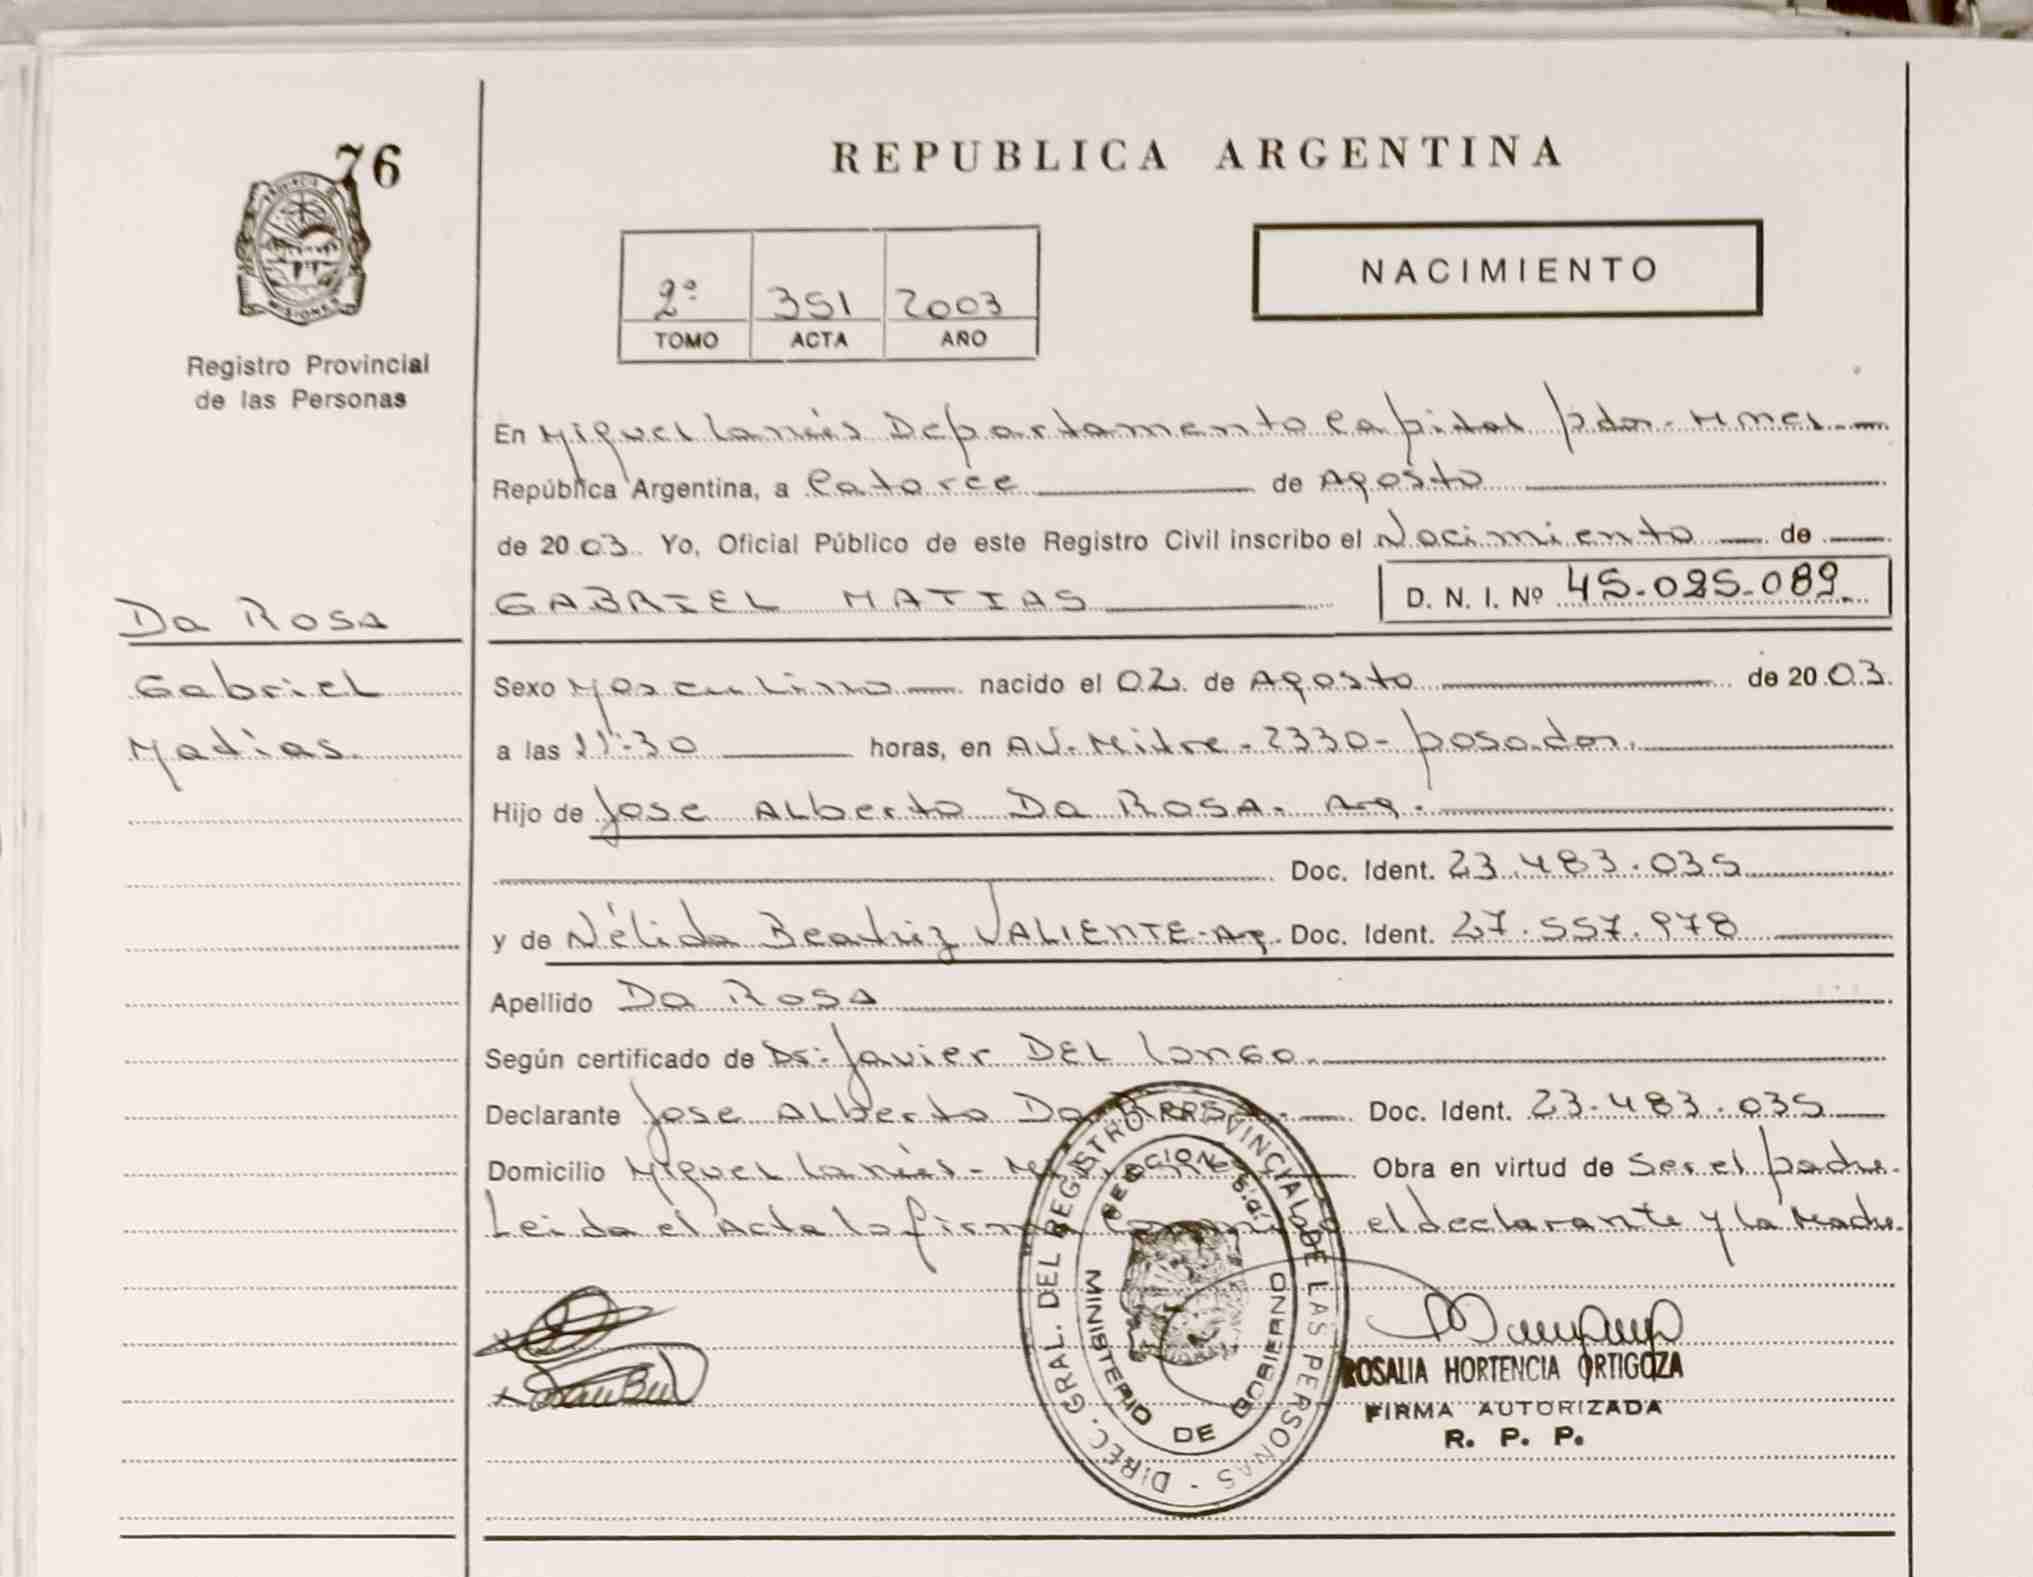 76
REPUBLICA ARGENTINA
NACIMIENTO
2º 351 2003
TOMO ACTA AÑO
PROVINCIA DE MISIONES
Registro Provincial
de las Personas
En Miguel Lanús Departamento Capital Pdas - Mnes -
República Argentina, a Catorce de Agosto
de 2003. Yo, Oficial Público de este Registro Civil inscribo el Nacimiento de
GABRIEL MATIAS D. N. I. Nº 45.025.089
Da Rosa
Gabriel
Matías
Sexo Masculino nacido el 02 de Agosto de 2003.
a las 11:30 horas, en Av. Mitre - 2330 - posadas.
Hijo de Jose Alberto Da Rosa. Arg.
Doc. Ident. 23.483.035
y de Nélida Beatriz VALIENTE - Arg. Doc. Ident. 27.557.978
Apellido Da Rosa
Según certificado de Dr: Javier DEL Longo.
Declarante Jose Alberto Da Rosa. Doc. Ident. 23.483.035
Domicilio Miguel Lanús - Obra en virtud de Ser el padre.
Leida el Acta la firma el declarante y la Madre.
DIREC. GRAL. DEL REGISTRO PROVINCIAL DE LAS PERSONAS
MINISTERIO DE GOBIERNO
ROSALIA HORTENCIA ORTIGOZA
FIRMA AUTORIZADA
R. P. P.